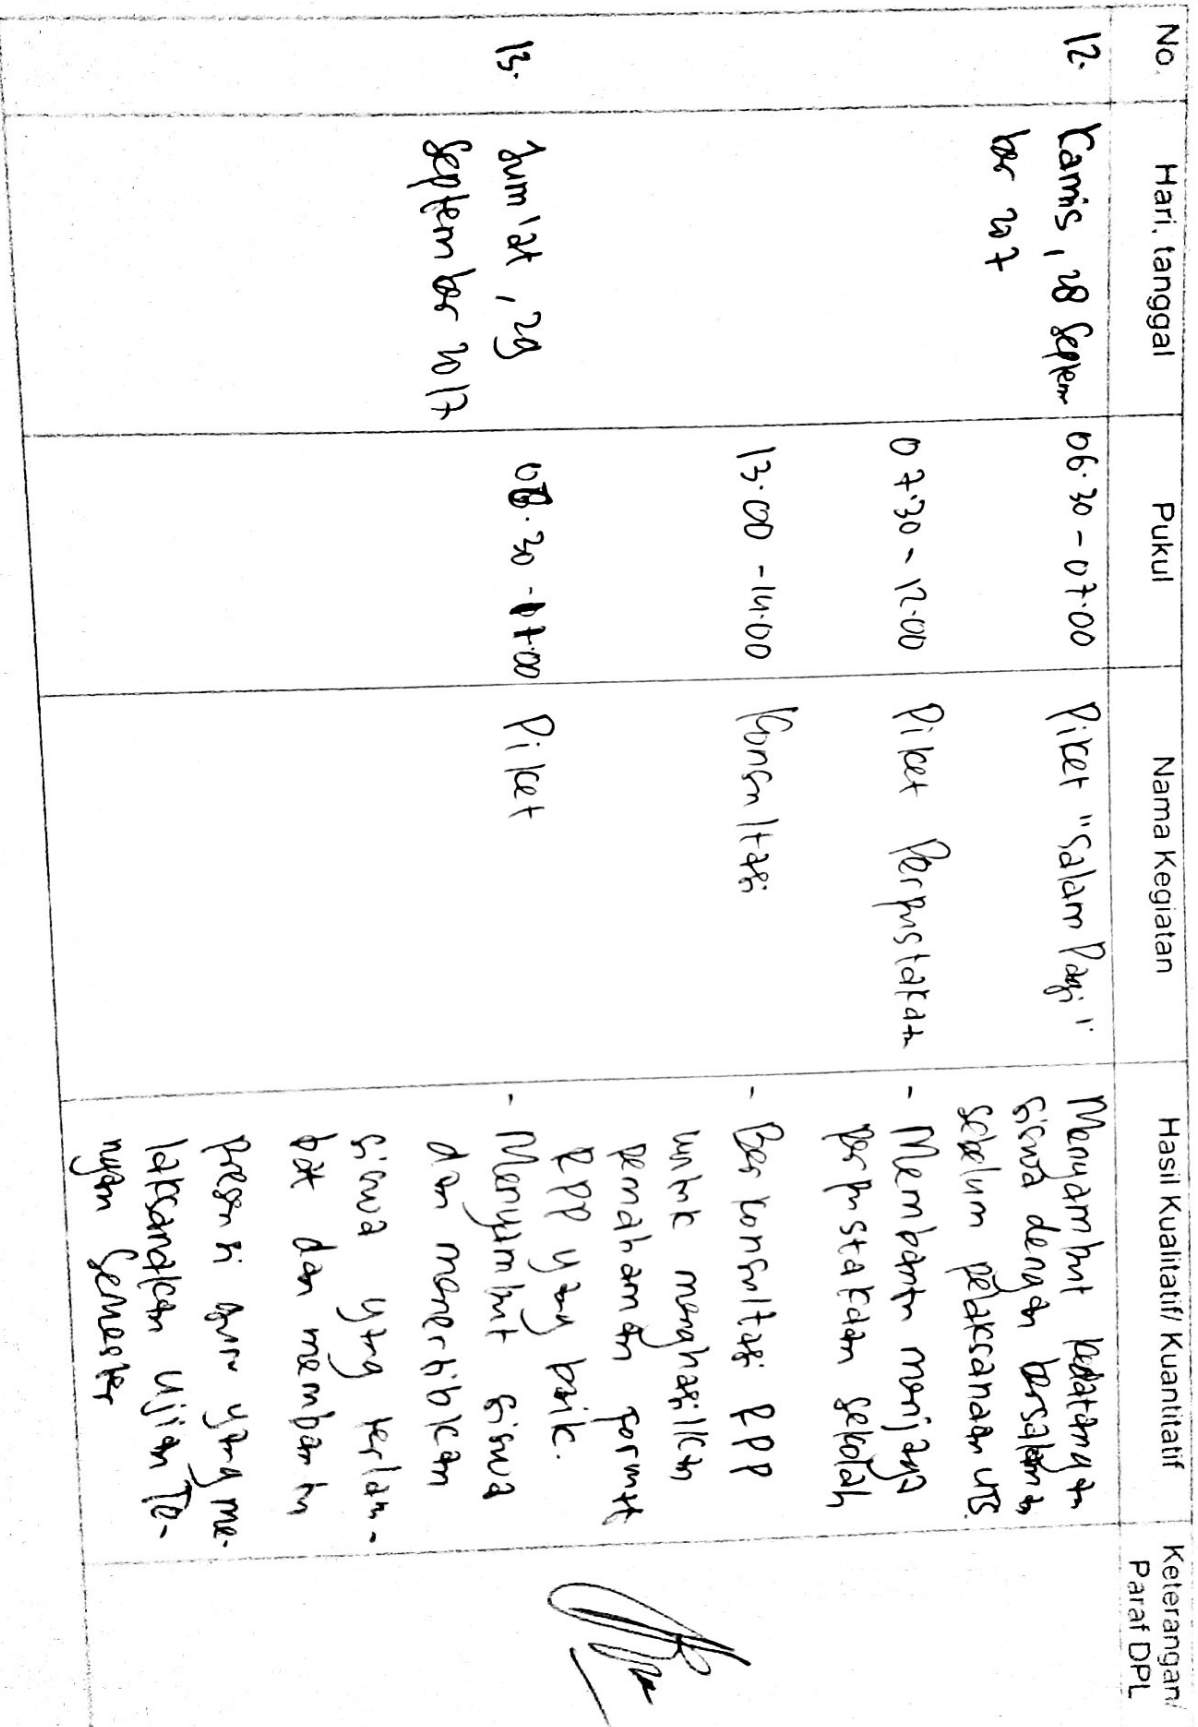 No.
Hari, tanggal
Pukul
Nama Kegiatan
Hasil Kualitatif/ Kuantitatif
Keterangan/
Paraf DPL
12.
Kamis, 28 Septem
ber 2017
06.30 - 07.00
Piket "Salam Pagi"
Menyambut kedatangan
siswa dengan bersalaman
sebelum pelaksanaan UTS.
07.30 - 12.00
Piket Perpustakaan
- Membantu menjaga
perpustakaan sekolah
13.00 - 14.00
Konsultasi
- Berkonsultasi RPP
untuk menghasilkan
pemahaman format
RPP yang baik.
13.
Jum'at, 29
September 2017
06.30 - 07.00
Piket
- Menyambut siswa
dan menertibkan
siswa yang terlam-
bat dan membantu
presensi guru yang me-
laksanakan Ujian Te-
ngah Semester